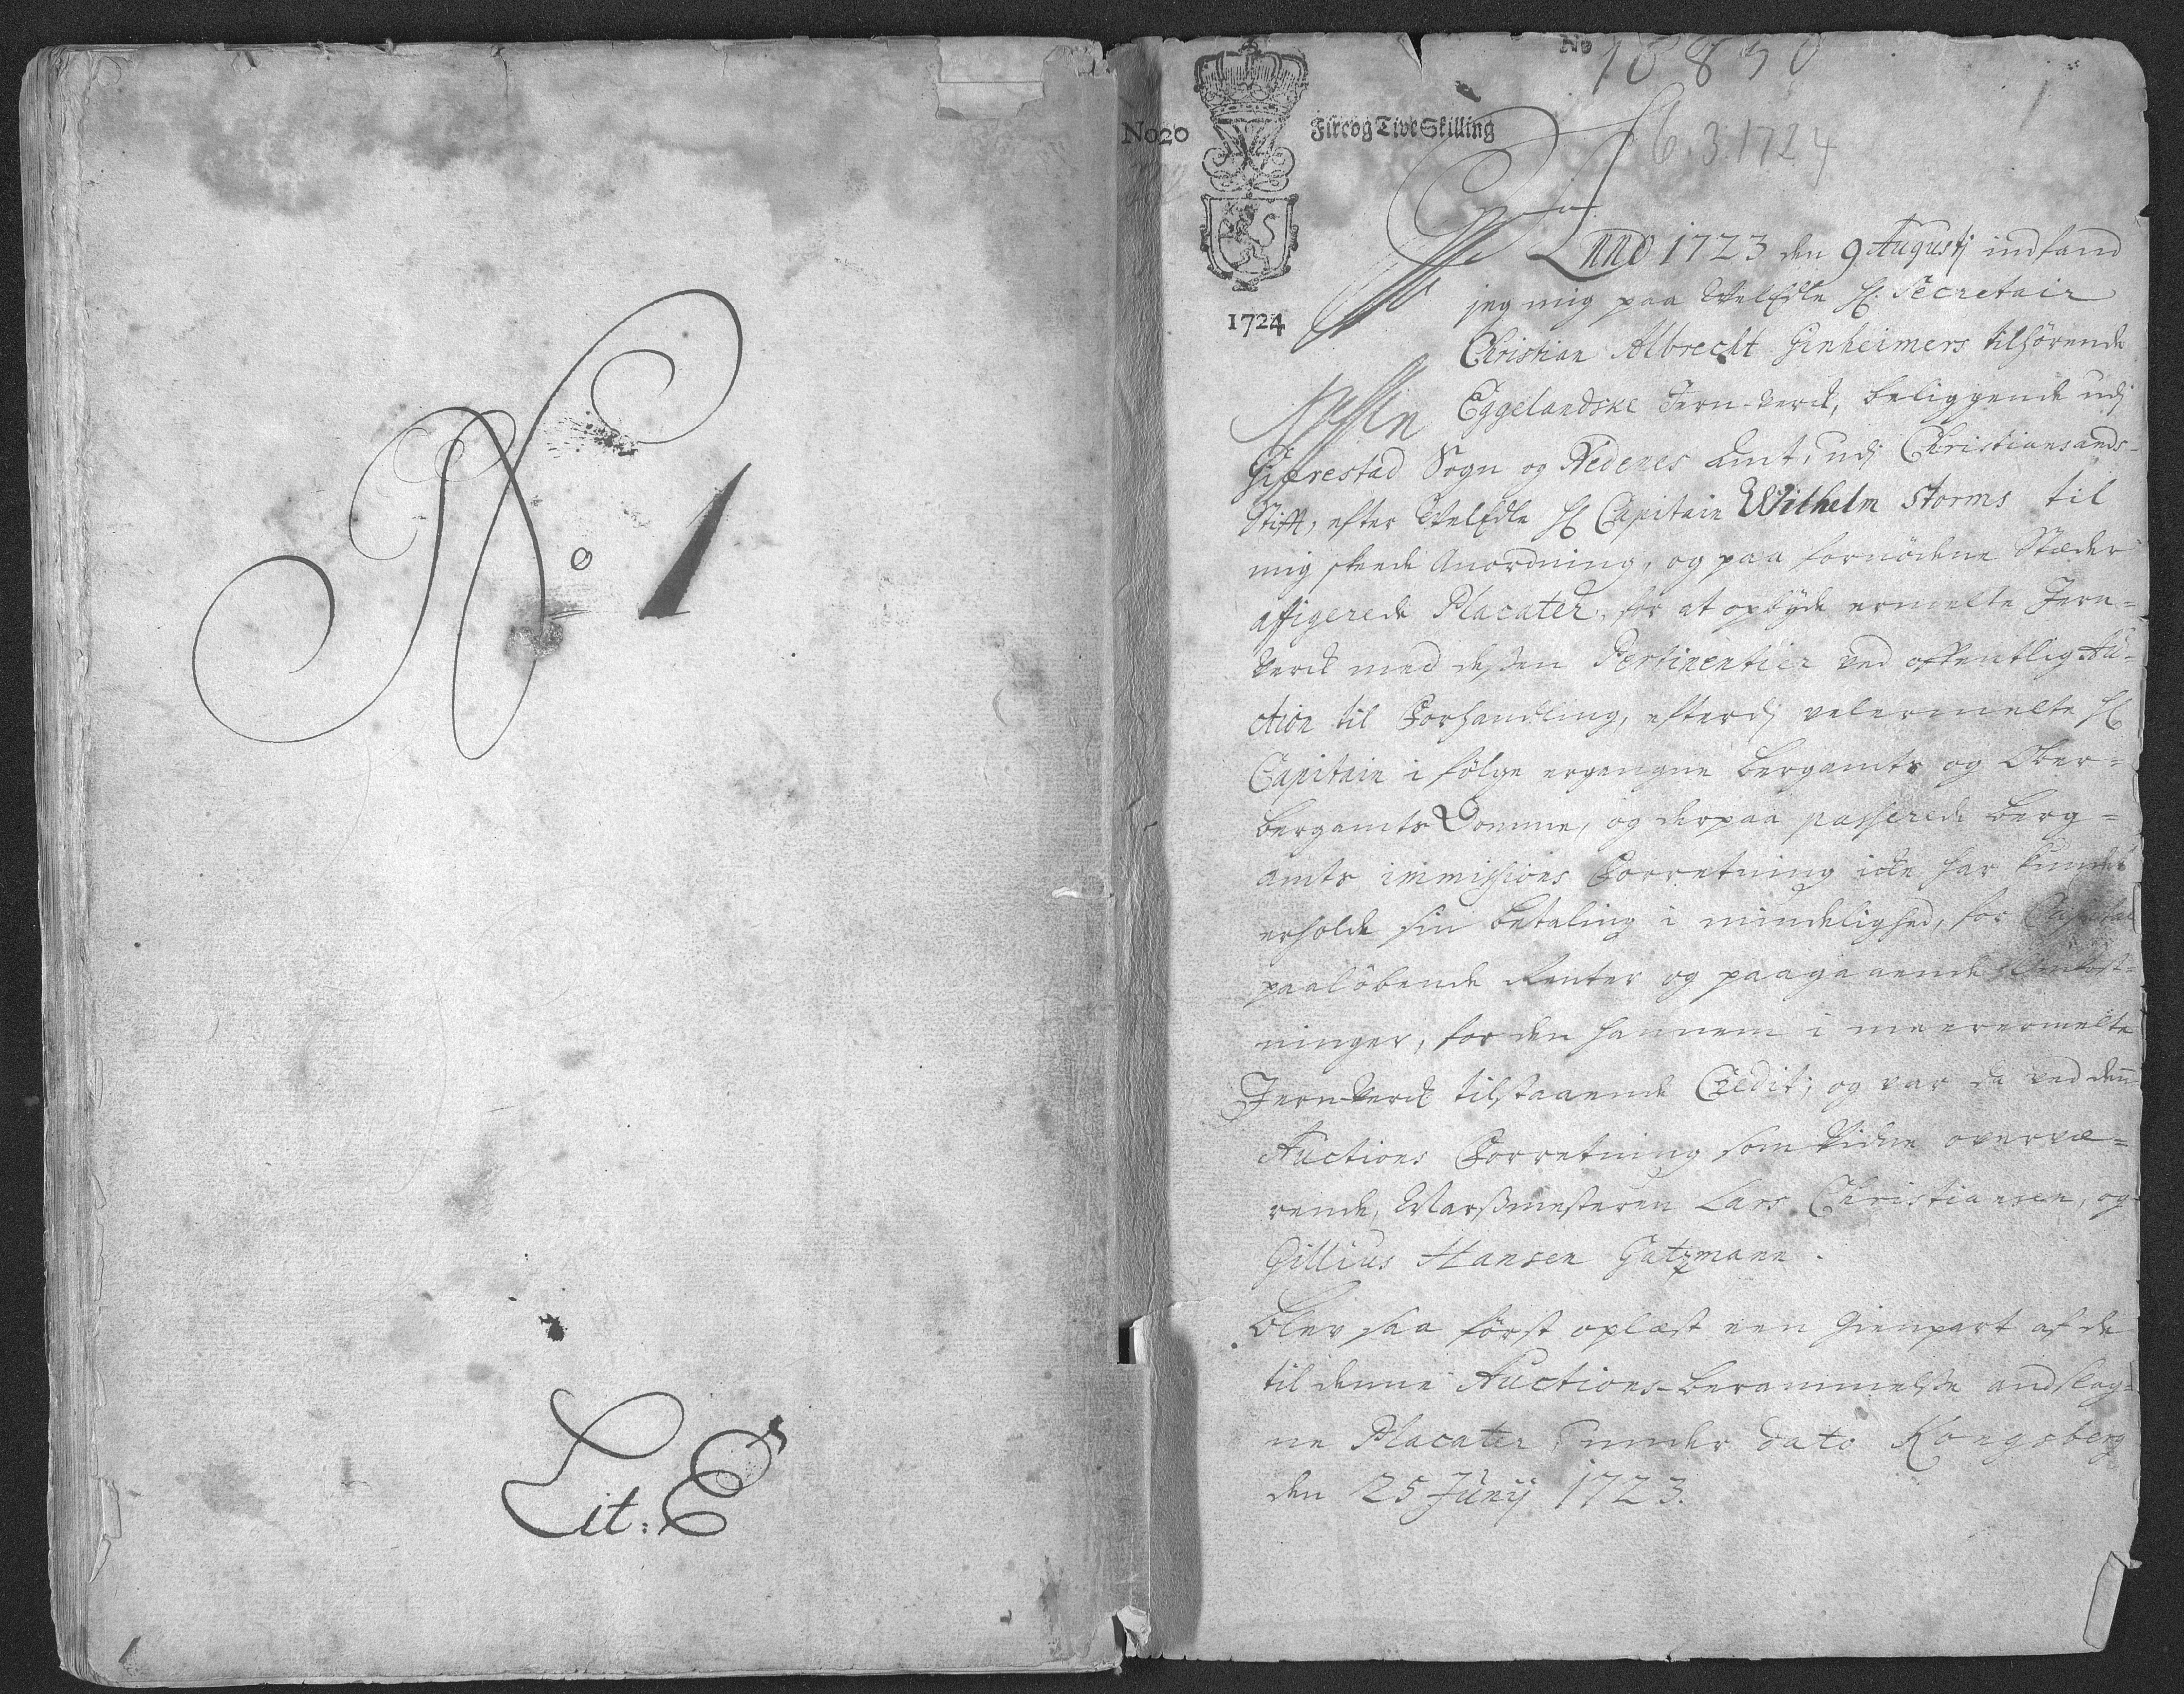 No 1
Lit: E
No 18830
No 20
Fire og Tive Skilling
6.3.1724
1724
Anno 1723 den 9 Augustj indfand
jeg mig paa Velædle H: Secretair
Christian Albrecht Ginheimers tilhørende
Eggelandske Jern-Verck, beliggende udj
Gierrestad Sogn og Nedenes Amt, udj Christiansands
Stift, efter Velædle H: Capitain Wilhelm Storms til
mig skeede Anordning, og paa fornødene Stæder
affigerede Placater, for at opbyde ermelte Jern-
Verck med dessen Pertinentier ved offentlig Au-
ction til Forhandling, efterdj velermelte H:
Capitain i følge ergangne Bergamts og Ober-
bergamts Domme, og derpaa passerede Berg-
amts immissions Forretning icke har kundet
erholde sin betaling i mindelighed, for Capital
paaløbende Renter og paagaaende Omkost-
ninger, for den hannem i meerermelte
Jern-Verck tilstaaende Credit; og var da ved den
Auctions Forretning som Vidne overvæ-
rende, Marßmesteren Lars Christiansen, og
Gillius Hansen Gatzmann.
Blev saa først oplæst een Gienpart af de
til denne Auctions-berammelße andslag-
ne Placater under dato Kongsberg
den 25 Junij 1723.